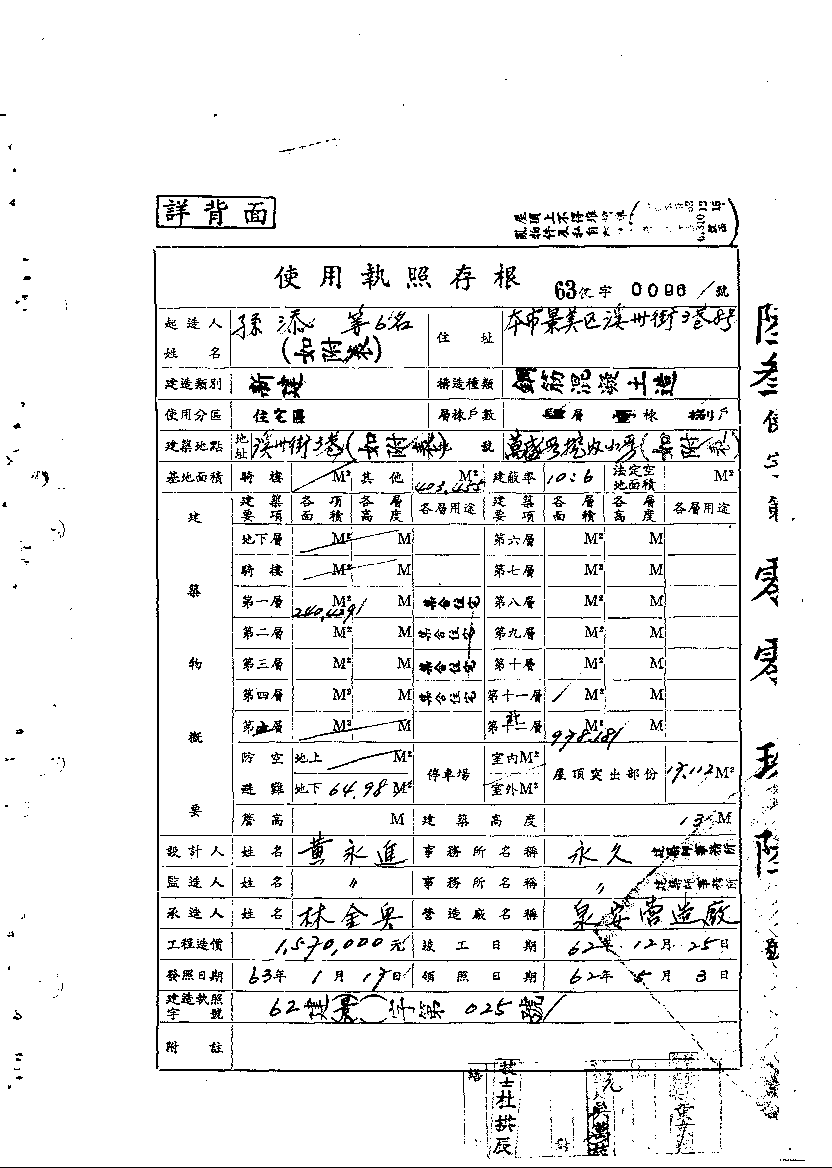 詳背面
屋頂上不得堆
使用執照存根 63使字 0096 號
起造人姓名 孫添 等6名 (如附表) 住址 本市景美区溪州街3巷8号
建造類別 新建 構造種類 鋼筋混凝土造
使用分區 住宅區 層棟戶數 層 棟 捌戶
建築地點 地址 溪州街3巷(如附 號
基地面積 騎樓 M² 其他 403.455 M² 建蔽率 10:6 法定空地面積 M²
建築物概要 建築要項 各項面積 各層高度 各層用途 建築要項 各層面積 各層高度 各層用途
地下層 M² M 第六層 M² M
騎樓 M² M 第七層 M² M
第一層 240.4291 M² M 集合住宅 第八層 M² M
第二層 M² M 集合住宅 第九層 M² M
第三層 M² M 集合住宅 第十層 M² M
第四層 M² M 集合住宅 第十一層 M² M
第五層 M² M 第十二層 978.181 M² M
防空避難 地上 M² 停車場 室內M² 屋頂突出部份 17.112 M²
地下 64.98 M² 室外M²
簷高 M 建築高度 13 M
設計人 姓名 黃永進 事務所名稱 永久 建築師事務所
監造人 姓名 〃 事務所名稱 〃 建築師事務所
承造人 姓名 林金奥 營造廠名稱 泉安營造廠
工程造價 1,570,000元 竣工日期 62年12月25日
發照日期 63年1月17日 領照日期 62年5月3日
建造執照字號 62建景 字第025號
附註
技士杜拱辰
陸叁使字第零零玖陸 號